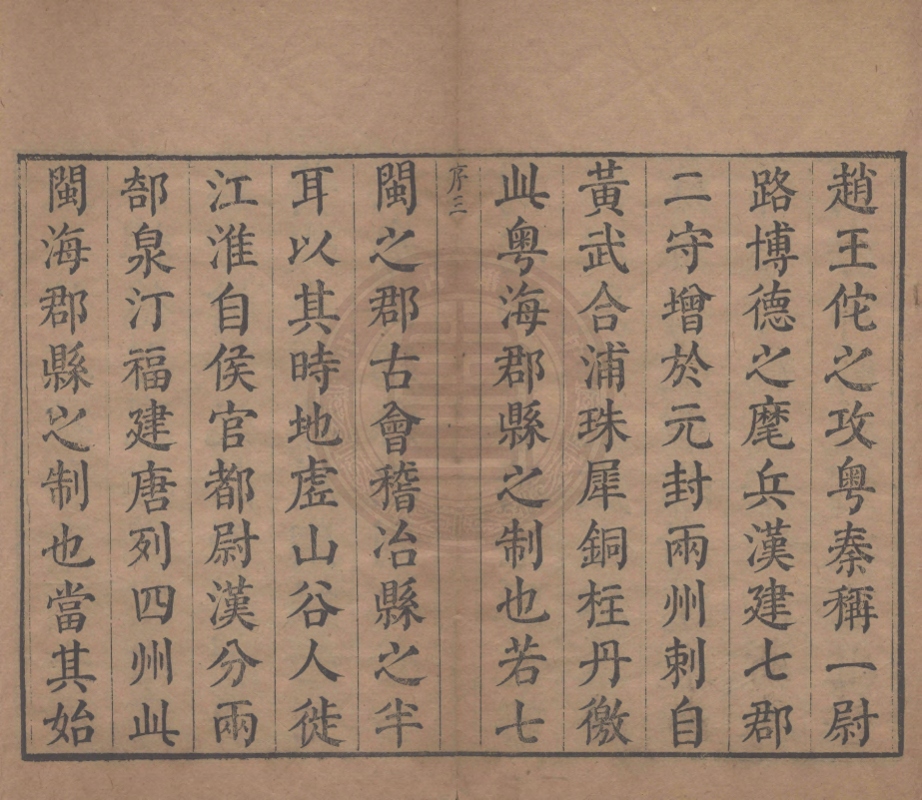 趙王佗之攻粤秦稱一尉
路博德之麾兵漢建七郡
二守增於元封兩州刺自
黃武合浦珠犀銅柱丹徼
此粤海郡縣之制也若七
序三
閩之郡古會稽冶縣之半
耳以其時地虛山谷人徙
江淮自侯官都尉漢分兩
郚泉汀福建唐列四州此
閩海郡縣之制也當其始